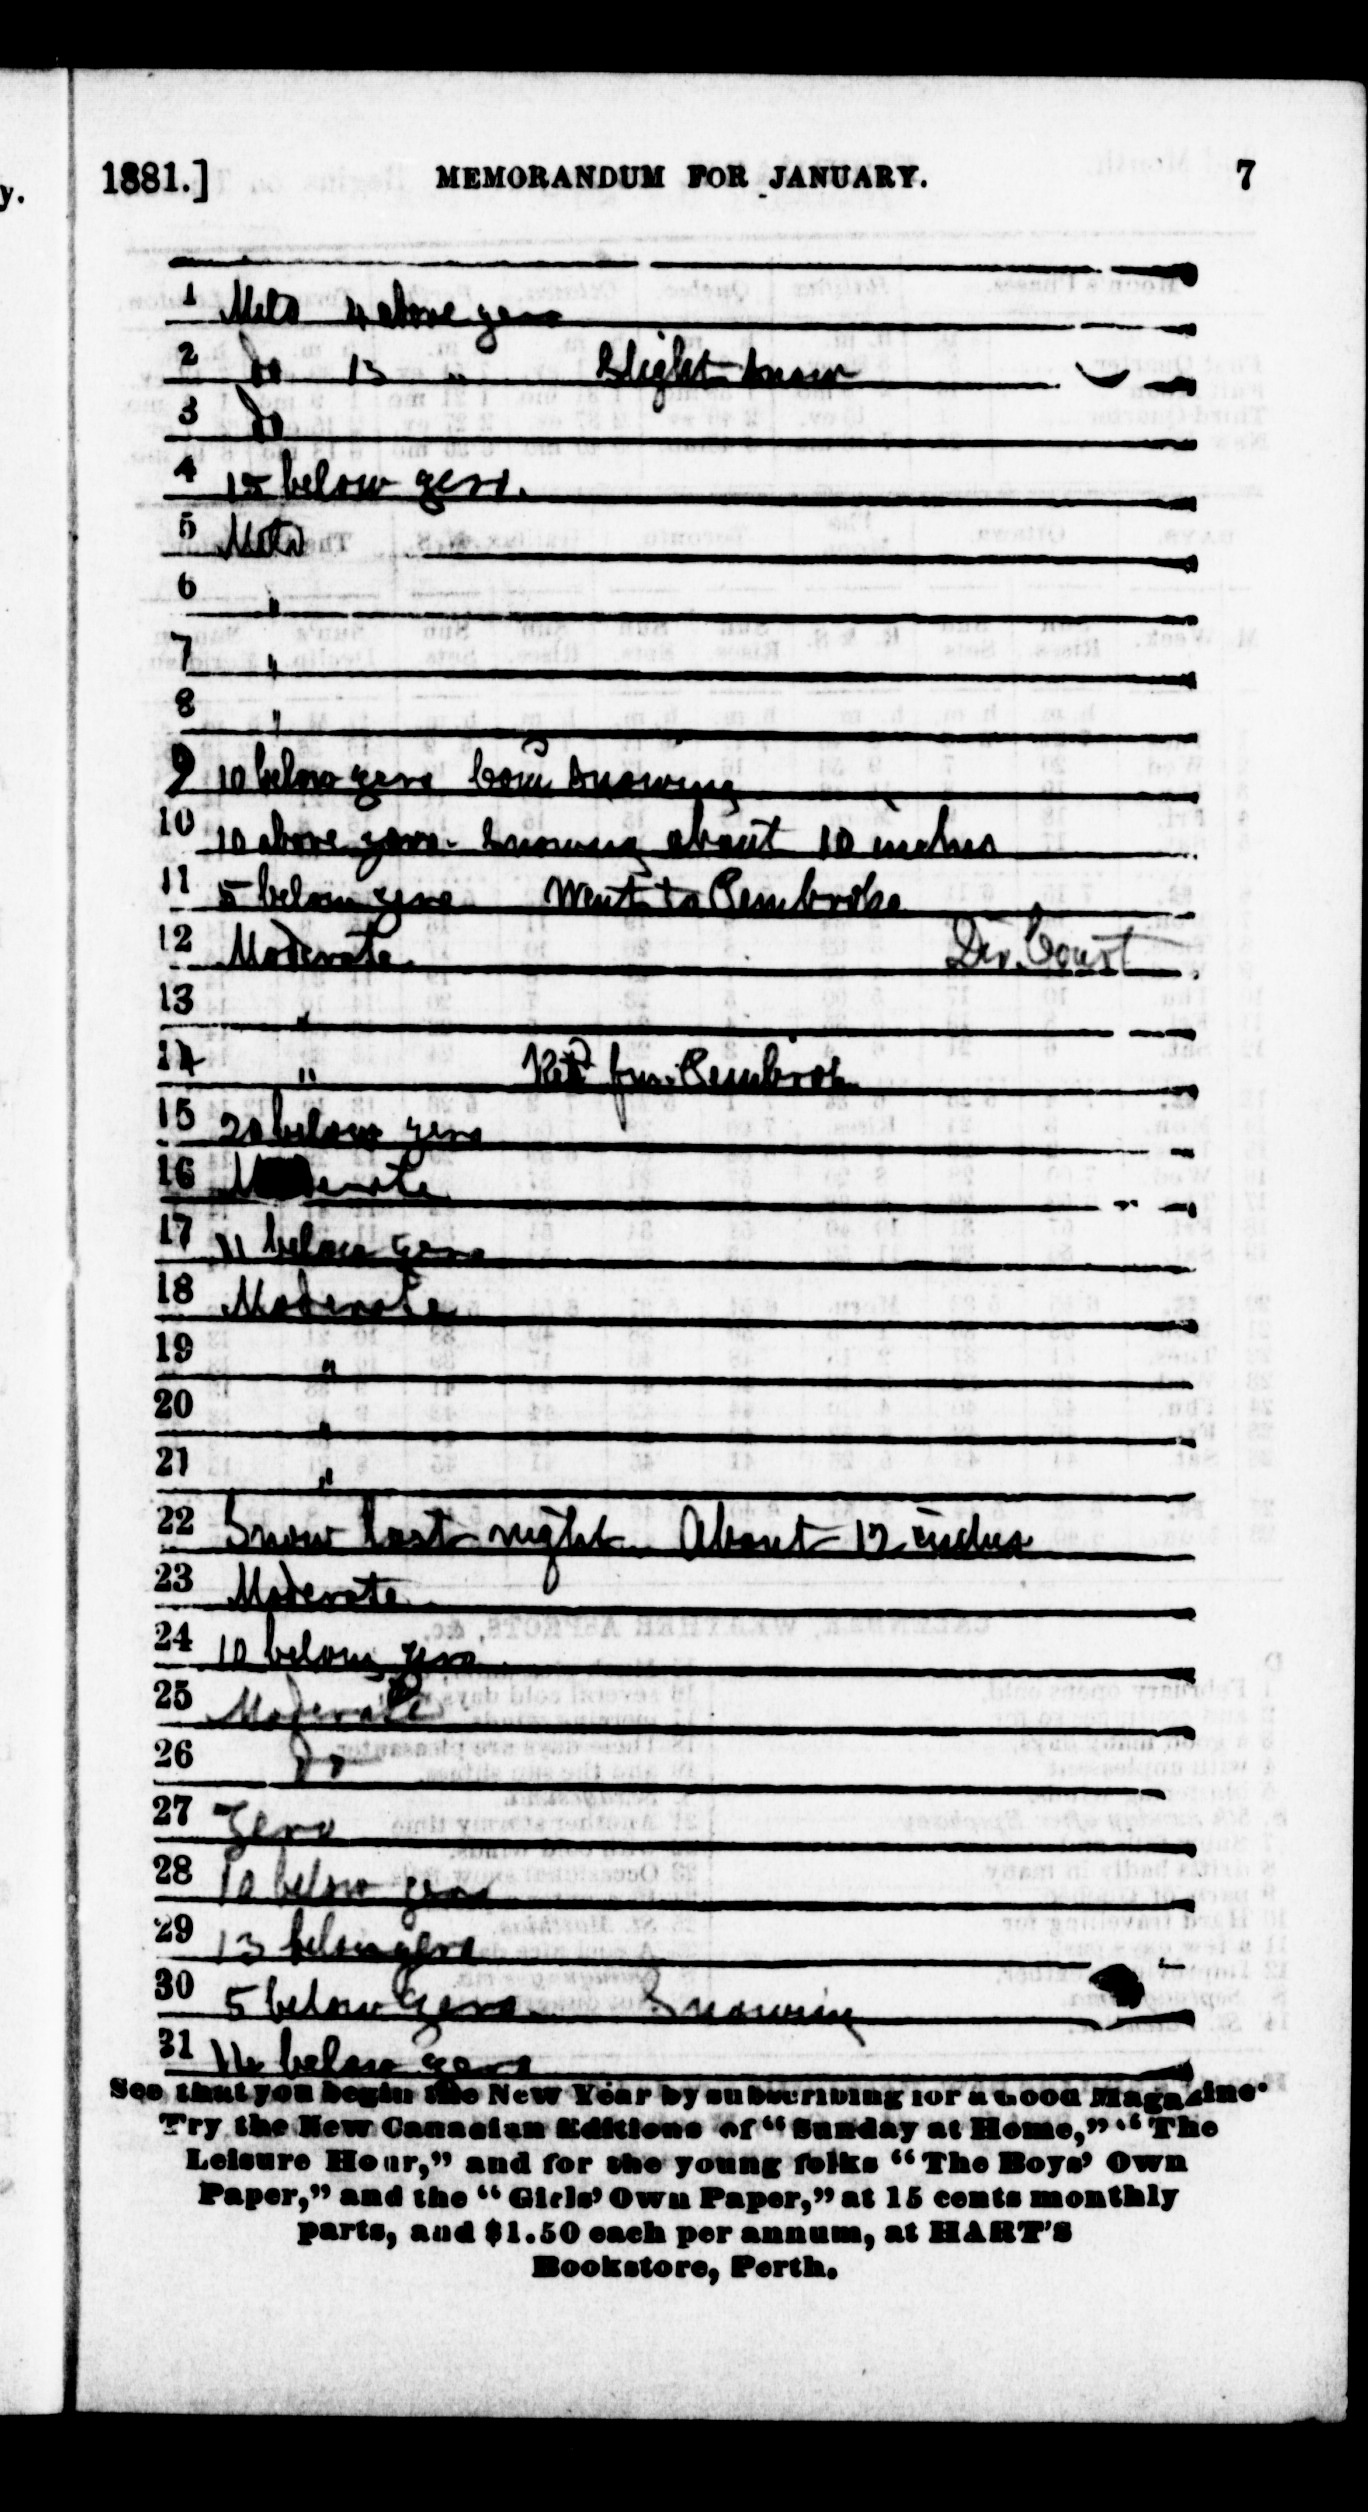 y.
1881.] MEMORANDUM FOR JANUARY. 7
1 Mild 4 above zero
2 Do 13 " Slight snow
3 Do
4 15 below zero.
5 Mild
6 "
7 "
8 "
9 10 below zero Com snowing
10 10 above zero. Snowing about 10 inches
11 5 below zero Went to Pembroke
12 Moderate Div. Court
13 "
14 " Retd from Pembroke
15 20 below zero
16 Moderate
17 11 below zero
18 Moderate
19 "
20 "
21 "
22 Snow last night. About 12 inches
23 Moderate
24 10 below zero
25 Moderate
26 Do
27 Zero
28 10 below zero
29 13 below zero
30 5 below zero. Snowing
31 14 below zero
See that you begin the New Year by subscribing for a Good Magazine.
Try the New Canadian Editions of "Sunday at Home," "The
Leisure Hour," and for the young folks "The Boys' Own
Paper," and the "Girls' Own Paper," at 15 cents monthly
parts, and $1.50 each per annum, at HART'S
Bookstore, Perth.